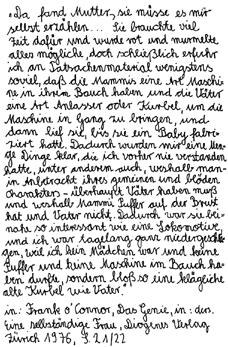 „Da fand Mutter, sie müsse es mir
selbst erzählen... Sie brauchte viel
Zeit dafür und wurde rot und murmelte
alles mögliche, doch schließlich erfuhr
ich an Tatsachenmaterial wenigstens
soviel, daß die Mammis eine Art Maschi-
ne in ihrem Bauch haben und die Väter
eine Art Anlasser oder Kurbel, um die
Maschine in Gang zu bringen, und
dann lief sie, bis sie ein Baby fabri-
ziert hatte. Dadurch wurden mir eine Men-
ge Dinge klar, die ich vorher nie verstanden
hatte, unter anderem auch, weshalb man -
in Anbetracht ihres gemeinen und blöden
Charakters - überhaupt Väter haben muß
und weshalb Mammi Puffer auf der Brust
hat und Vater nicht. Dadurch war sie bei-
nahe so interessant wie eine Lokomotive,
und ich war tagelang ganz niedergeschla-
gen, weil ich kein Mädchen war und keine
Puffer und keine Maschine im Bauch ha-
ben durfte, sondern bloß so eine klägliche
alte Kurbel wie Vater."
in: Frank O'Connor, Das Genie, in: ders.
Eine selbständige Frau, Diogenes Verlag
Zürich 1976, S. 21/22